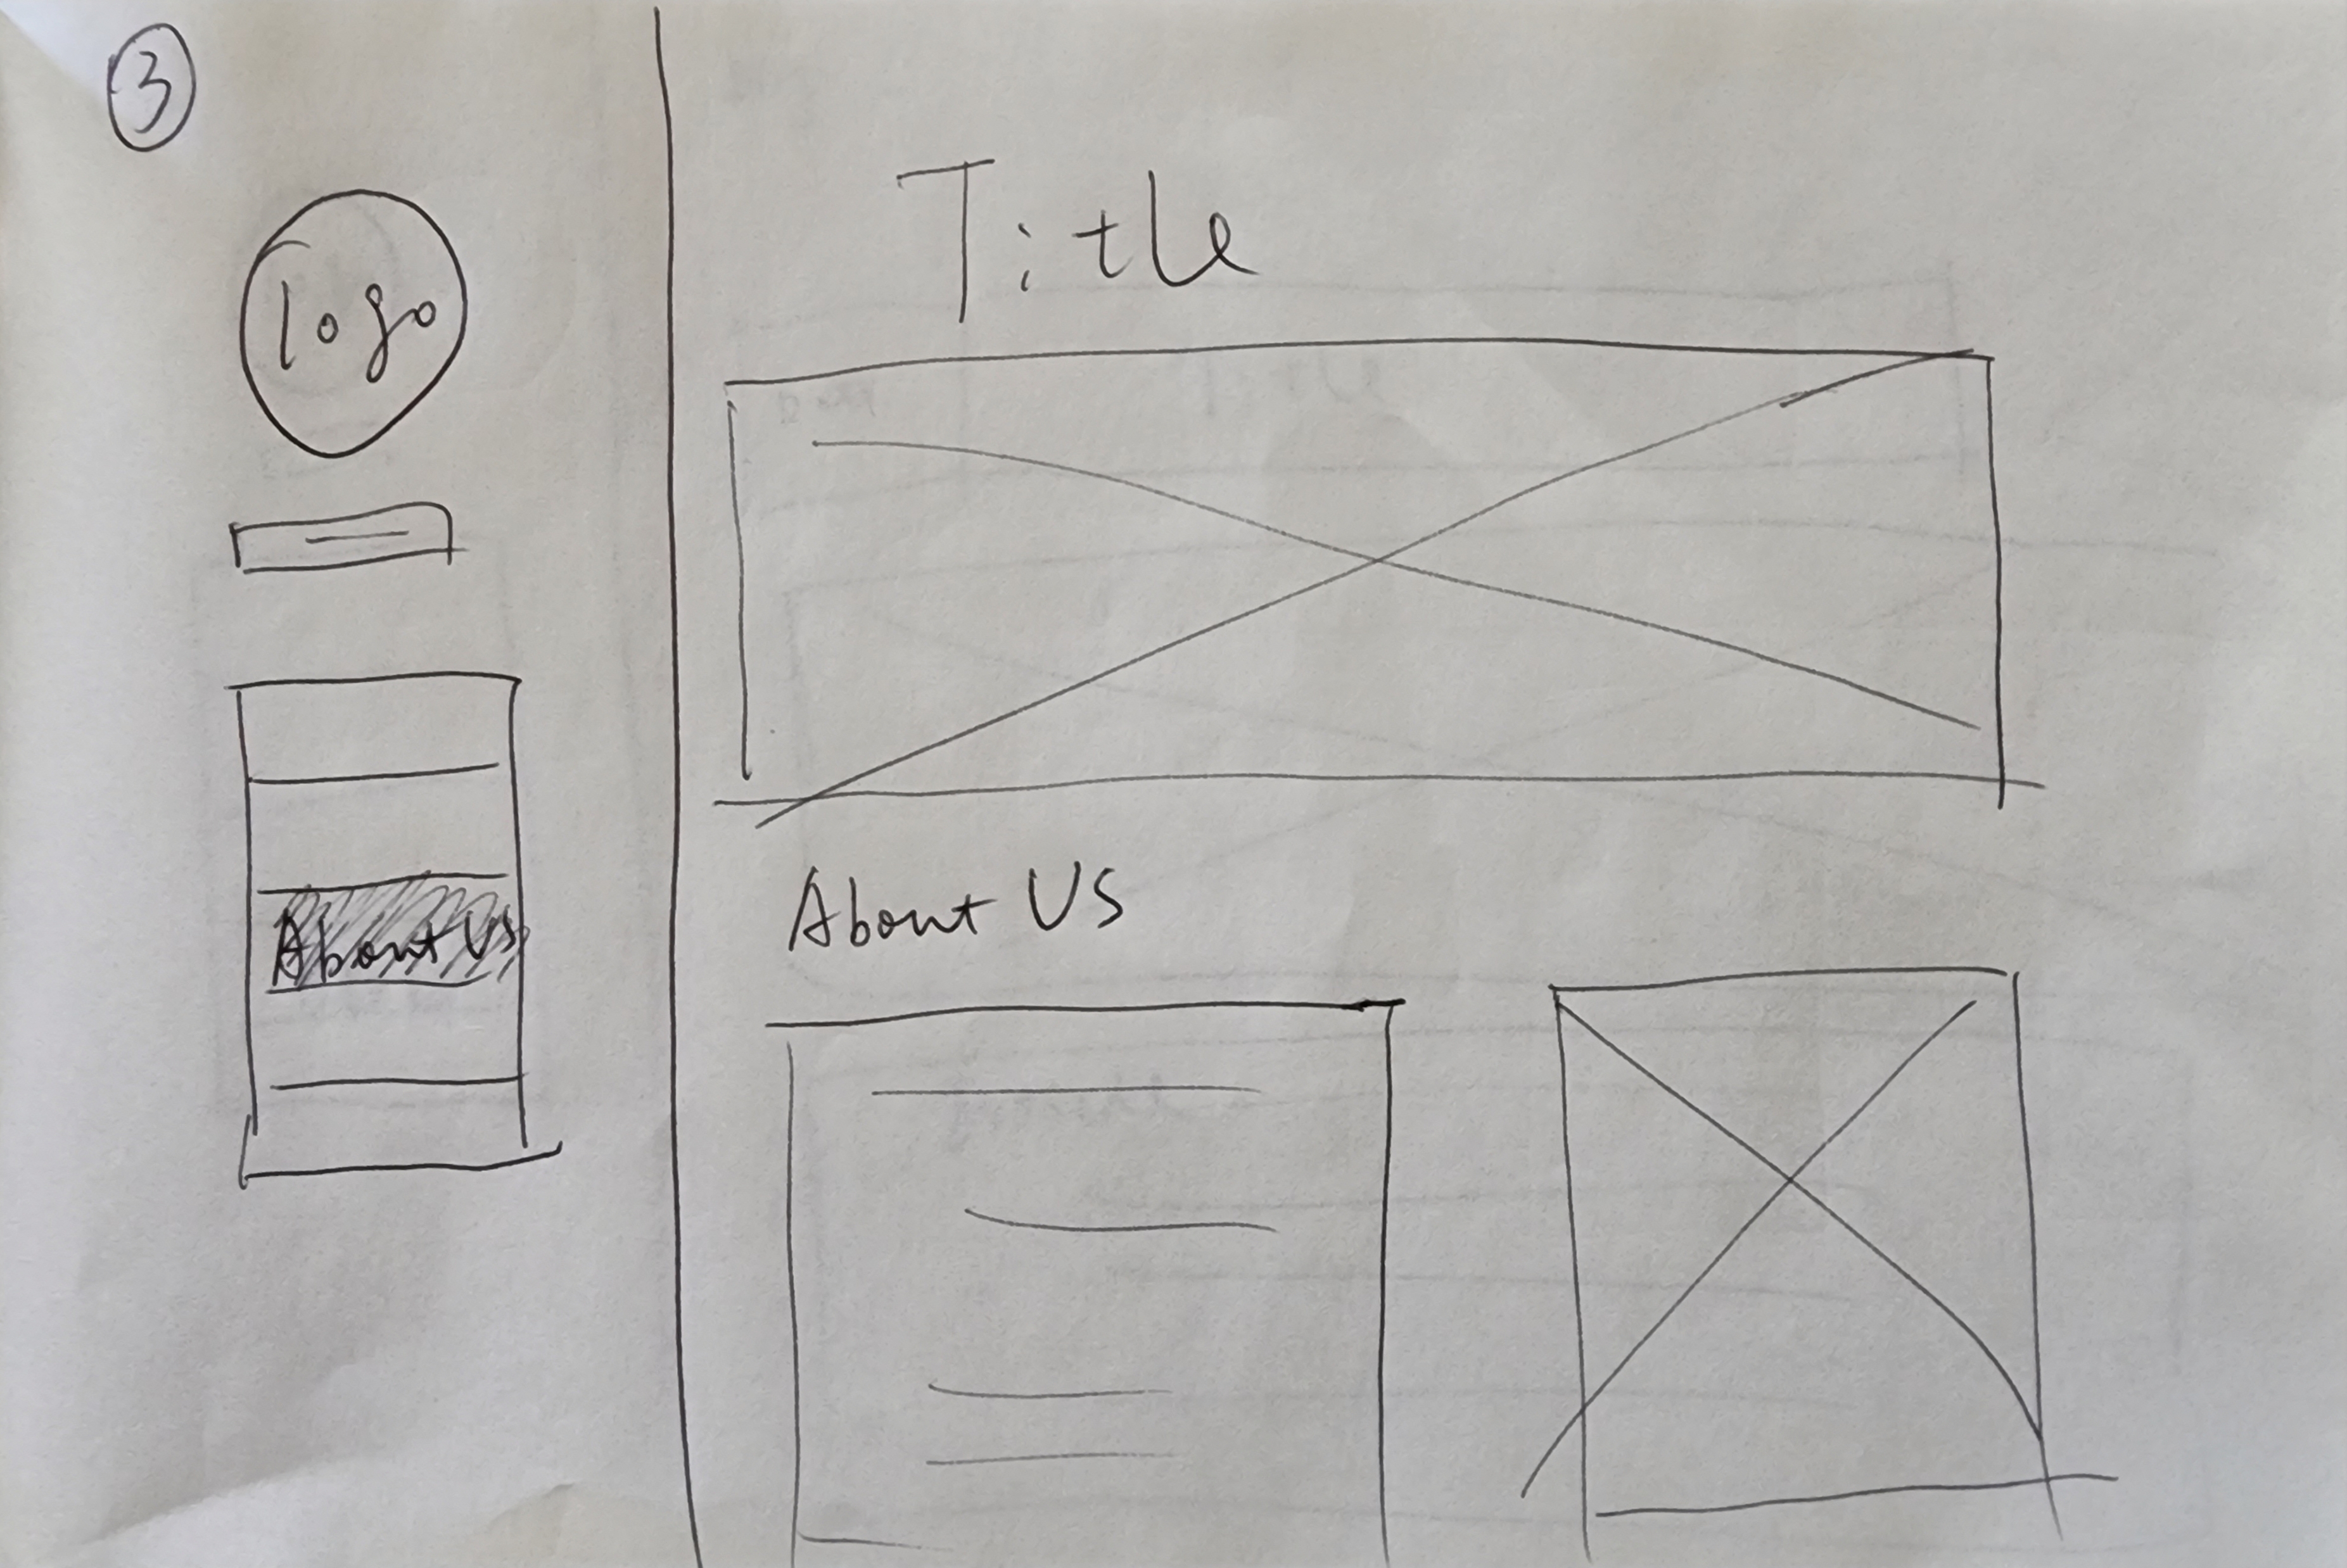 3
logo
About Us
Title
About US